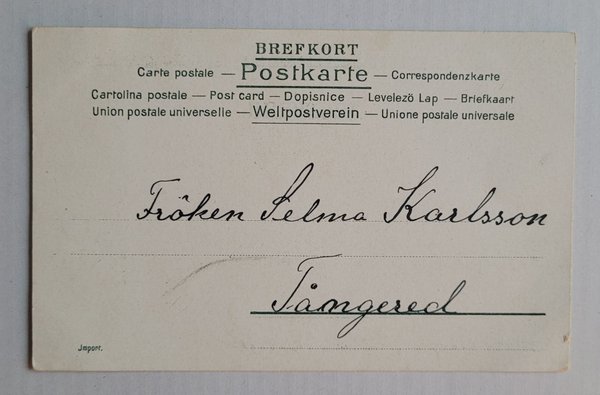 BREFKORT
Carte postale — Postkarte — Correspondenzkarte
Cartolina postale — Post card — Dopisnice — Levelezö Lap — Briefkaart
Union postale universelle — Weltpostverein — Unione postale universale
Fröken Selma Karlsson
Tångered
Import.